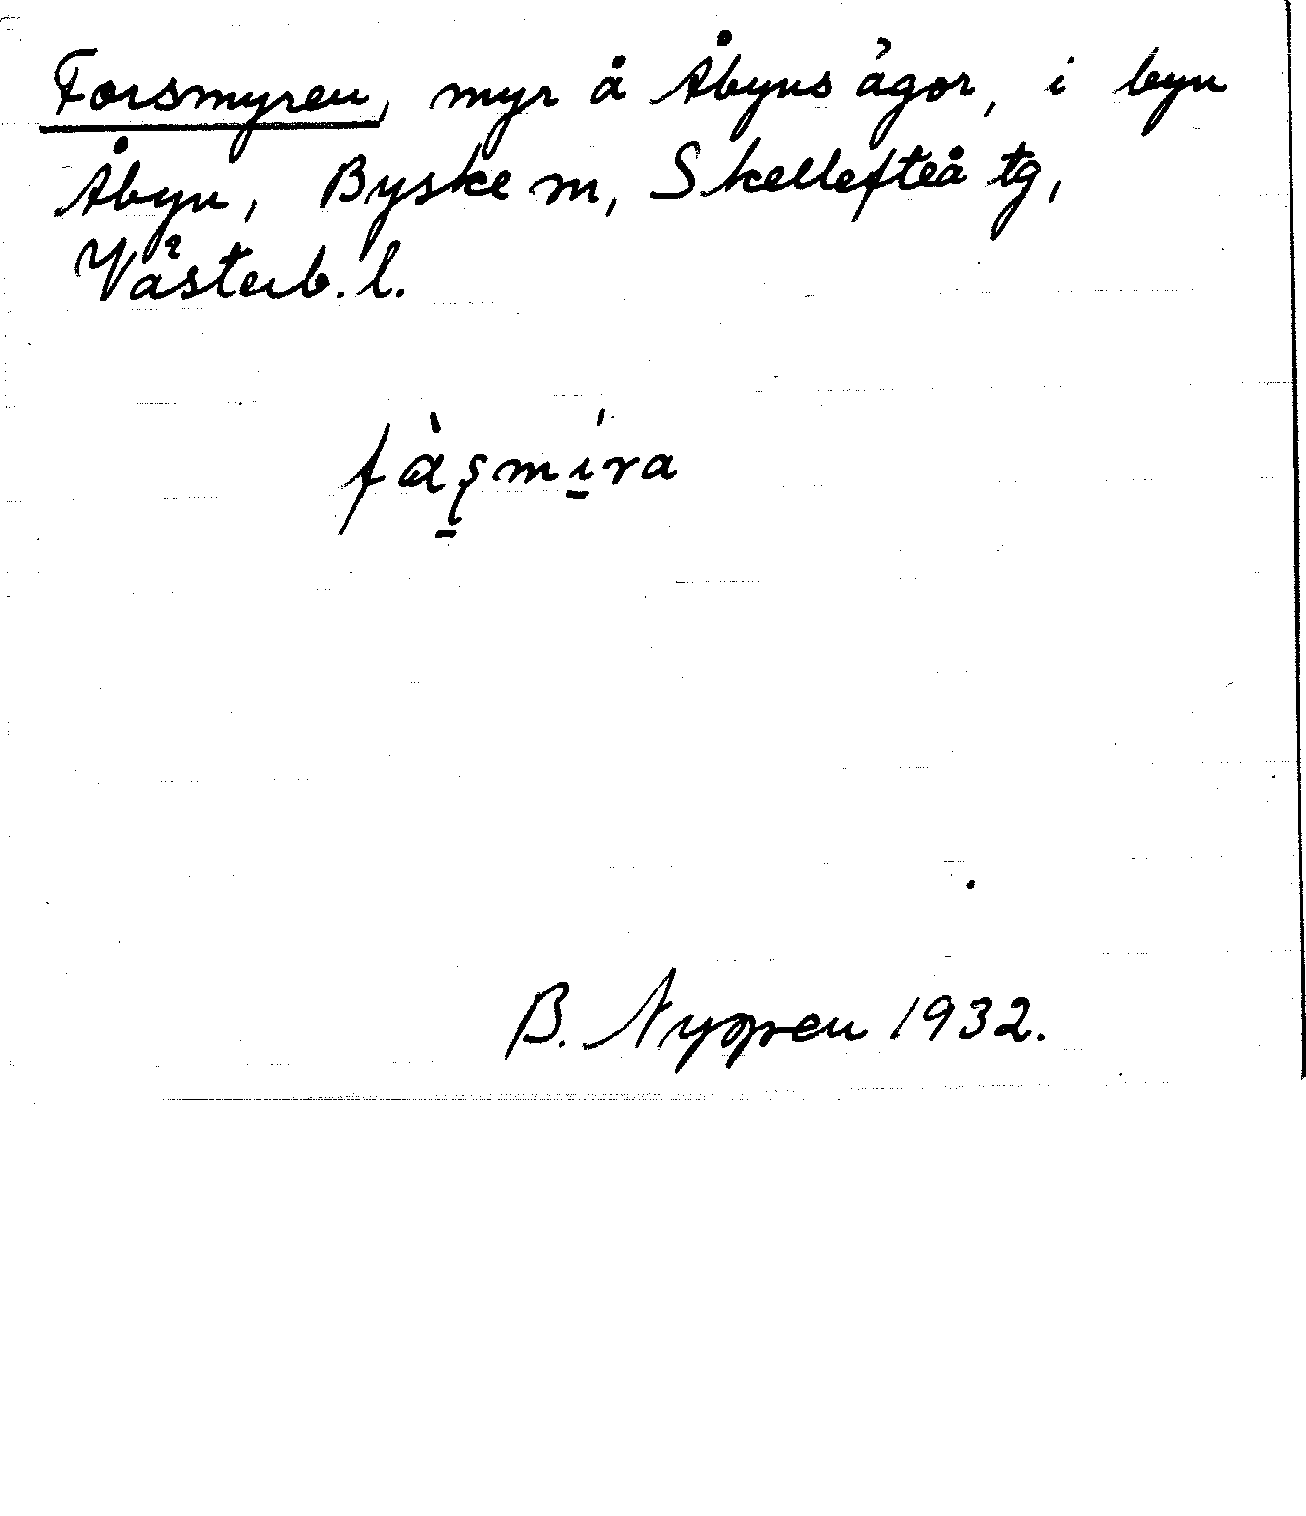 Forsmyren, myr å Åbyns ägor, i byn
Åbyn, Byske sn, Skellefteå tg,
Västerb. l.
fàʂ̠mí̠ra
B. Nygren 1932.